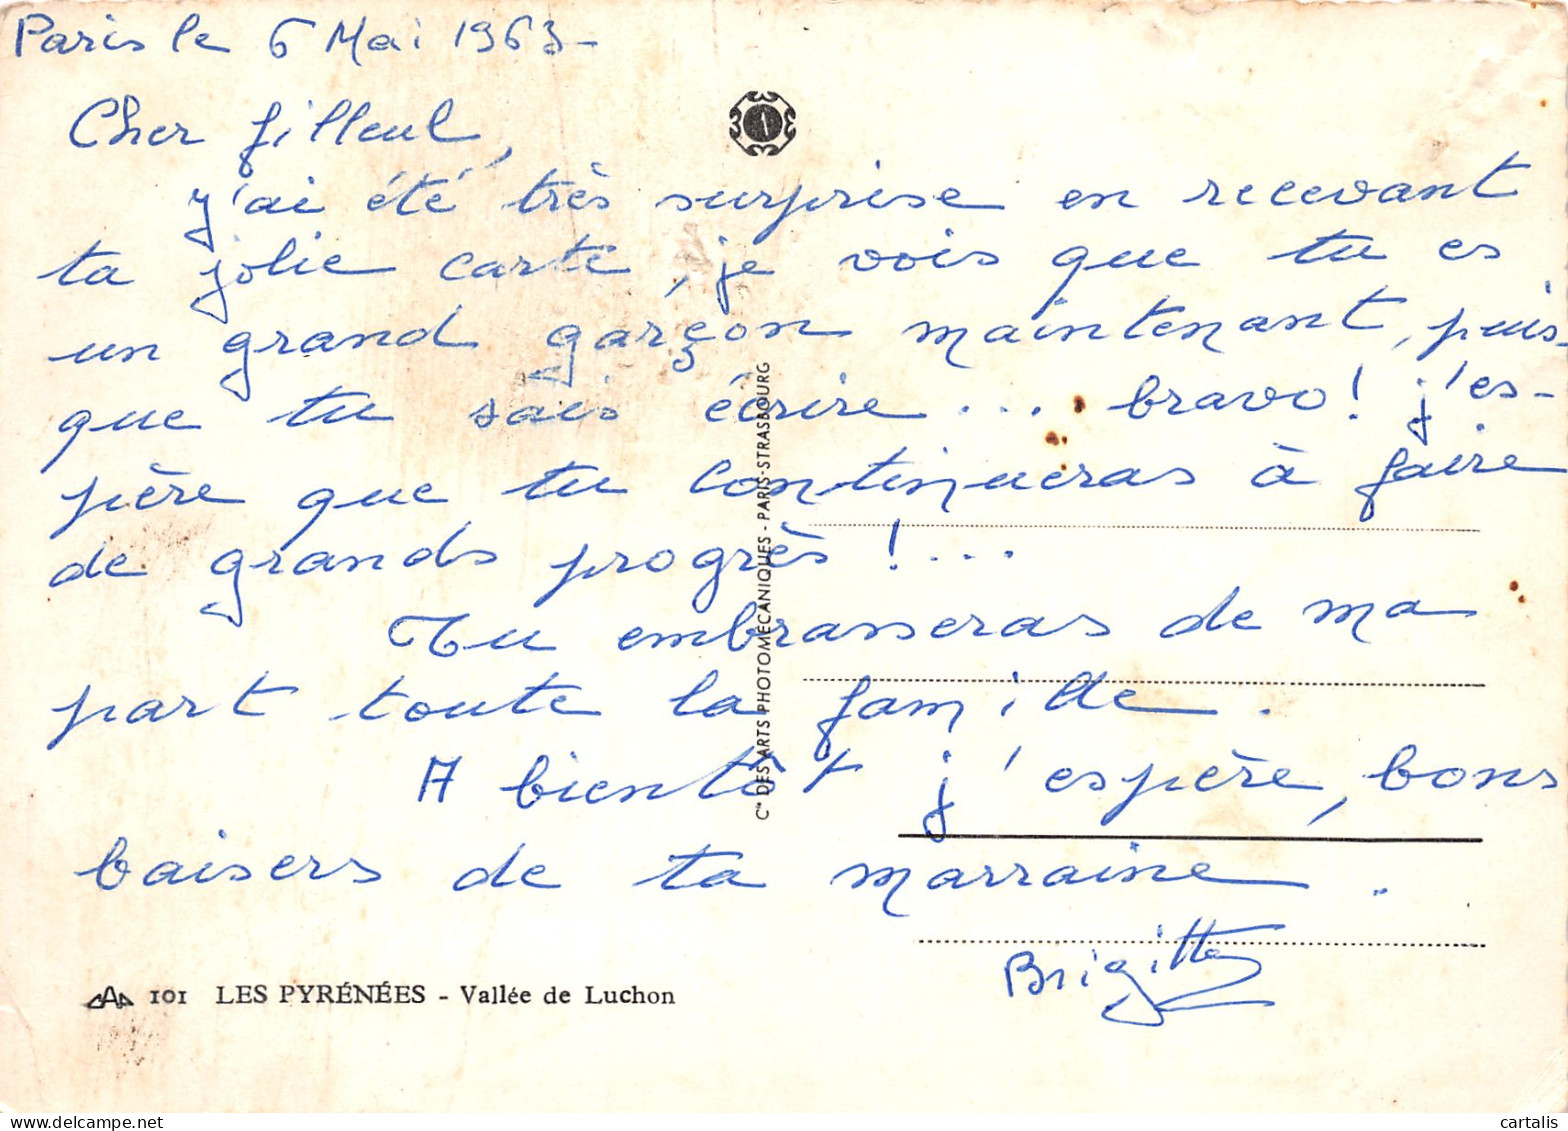 Paris le 6 Mai 1963-
Cher filleul,
j'ai été très surprise en recevant
ta jolie carte, je vois que tu es
un grand garçon maintenant, puis-
que tu sais écrire ... bravo! j'es-
père que tu continueras à faire
de grands progrès !...
Tu embrasseras de ma
part toute la famille.
A bientôt j'espère, bons
baisers de ta marraine.
Brigitte
Cie DES ARTS PHOTOMÉCANIQUES - PARIS-STRASBOURG
CAP 101 LES PYRÉNÉES - Vallée de Luchon
www.delcampe.net
cartalis